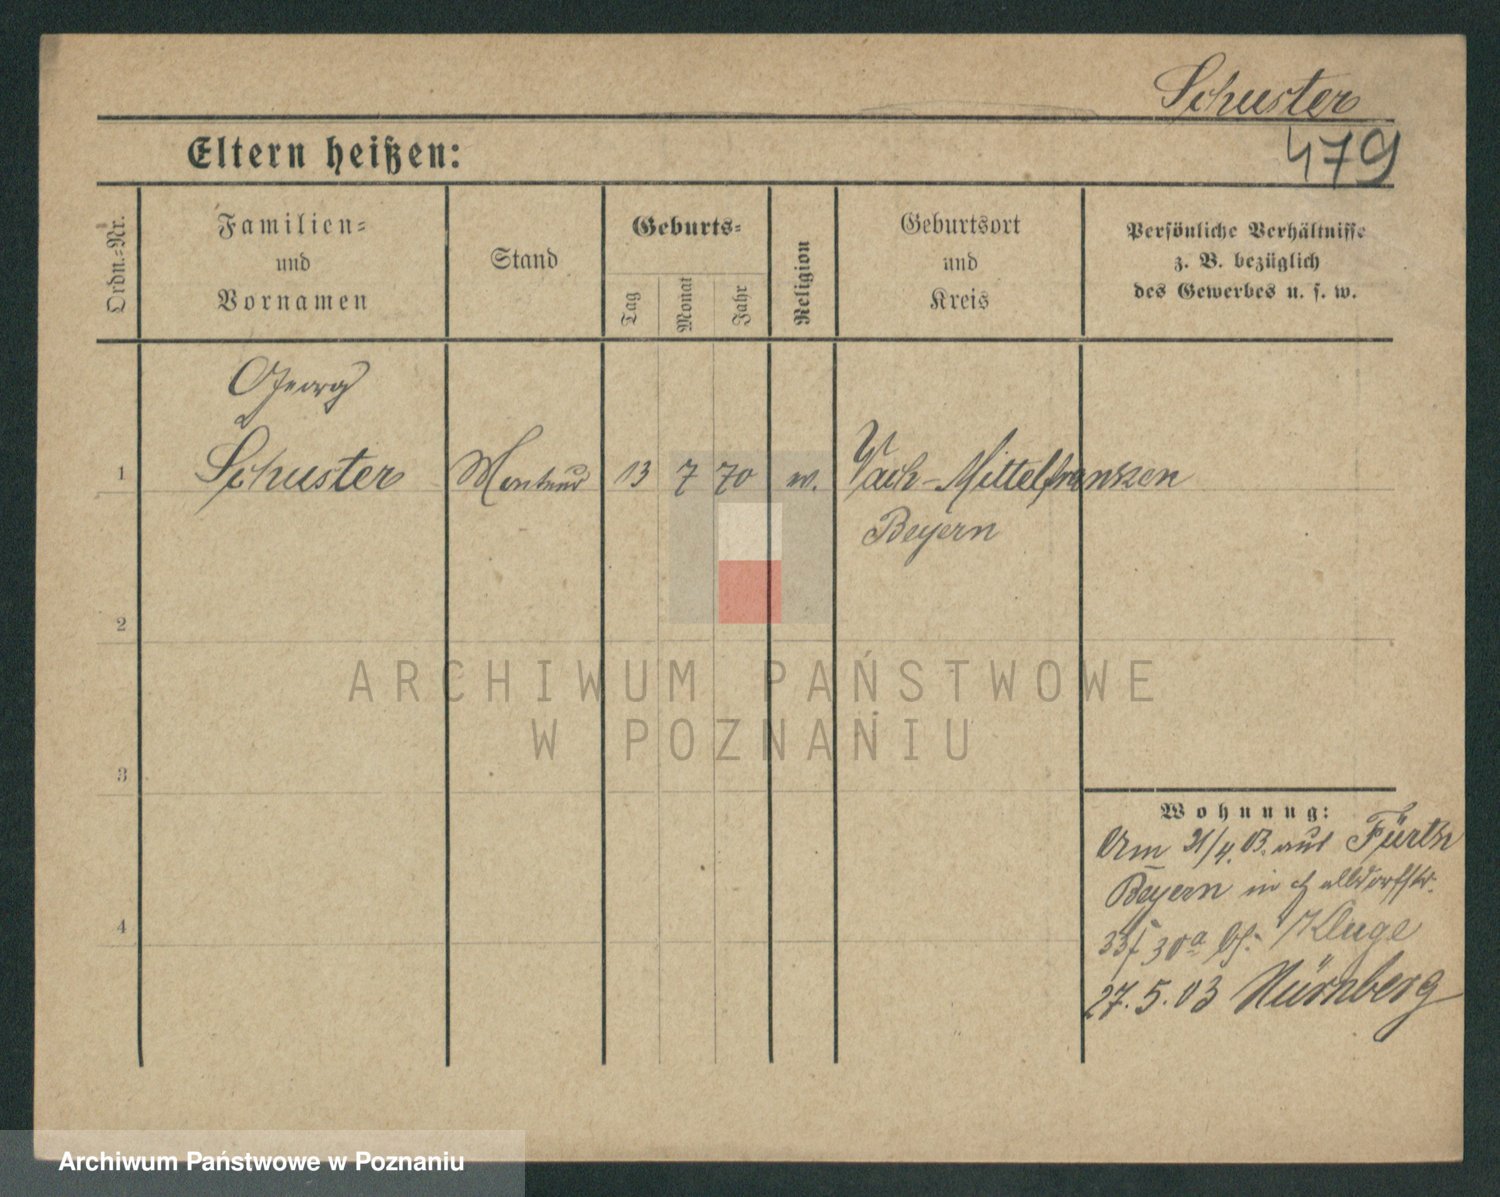 Schuster
479
Eltern heißen:
Ordn.-Nr.
Familien-
und
Vornamen
Stand
Geburts-
Tag
Monat
Jahr
Religion
Geburtsort
und
Kreis
Persönliche Verhältnisse
z. B. bezüglich
des Gewerbes u. s. w.
Georg
1 Schuster Monteur 13 7 70 w. Vach-Mittelfranken
Bayern
2
3
4
ARCHIWUM PAŃSTWOWE
W POZNANIU
Wohnung:
Am 21/4. 03. aus Fürth
Bayern in
33 I 30a bei Kluge
27. 5. 03 Nürnberg
Archiwum Państwowe w Poznaniu